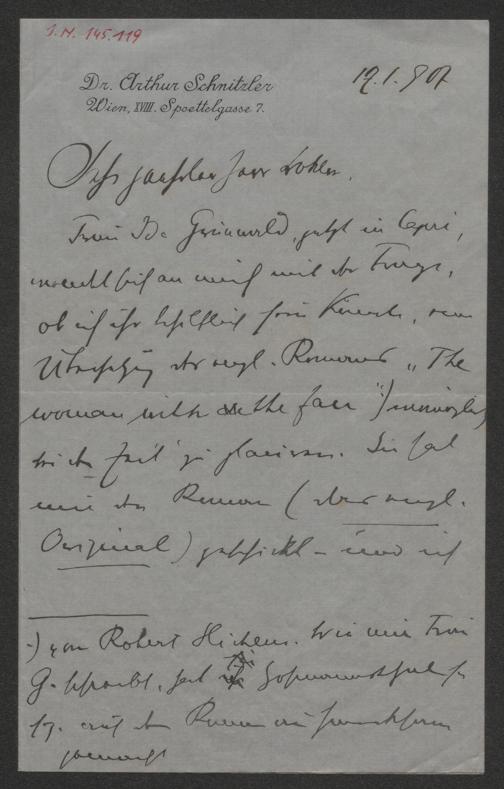 I.N. 145.119
Dr. Arthur Schnitzler
Wien, XVIII. Spoettelgasse 7.
19.1.907
Sehr geehrter Herr
Frau Ida Grünwald, jetzt in Capri,
wendet sich an mich mit der Frage,
ob ich ihr behilflich sein könnte, eine
Übersetzung des engl. Romans „The
woman with the fan“
bei der „Zeit“ zu placieren. Sie hat
mir den Roman (das engl.
Original) geschickt – und ich
von Robert Hichens. Wie mir Frau
G. schreibt, hat
auf den Roman
gemacht